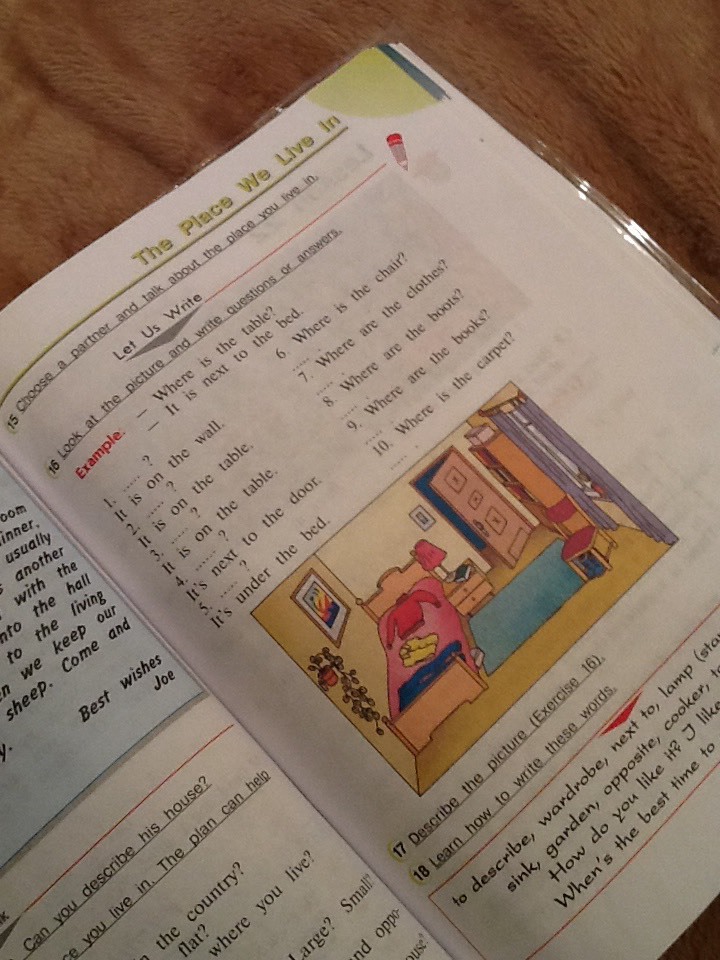 The Place We Live In
15 Choose a partner and talk about the place you live in.
Let Us Write
16 Look at the picture and write questions or answers.
Example: – Where is the table?
– It is next to the bed.
1. ..... ?
It is on the wall.
2. ..... ?
It is on the table.
3. ..... ?
It is on the table.
4. ..... ?
It's next to the door.
5. ..... ?
It's under the bed.
6. Where is the chair?
.....
7. Where are the clothes?
..... .
8. Where are the boots?
..... .
9. Where are the books?
..... .
10. Where is the carpet?
..... .
17 Describe the picture (Exercise 16).
18 Learn how to write these words.
to describe, wardrobe, next to, lamp
sink, garden, opposite, cooker,
How do you like it? I like
When's the best time to
oom
inner.
usually
s another
with the
nto the hall
to the living
n we keep our
sheep. Come and
y.
Best wishes
Joe
Can you describe his house?
ce you live in. The plan can help
n the country?
flat?
where you live?
Large? Small?
nd oppo-
ouse?